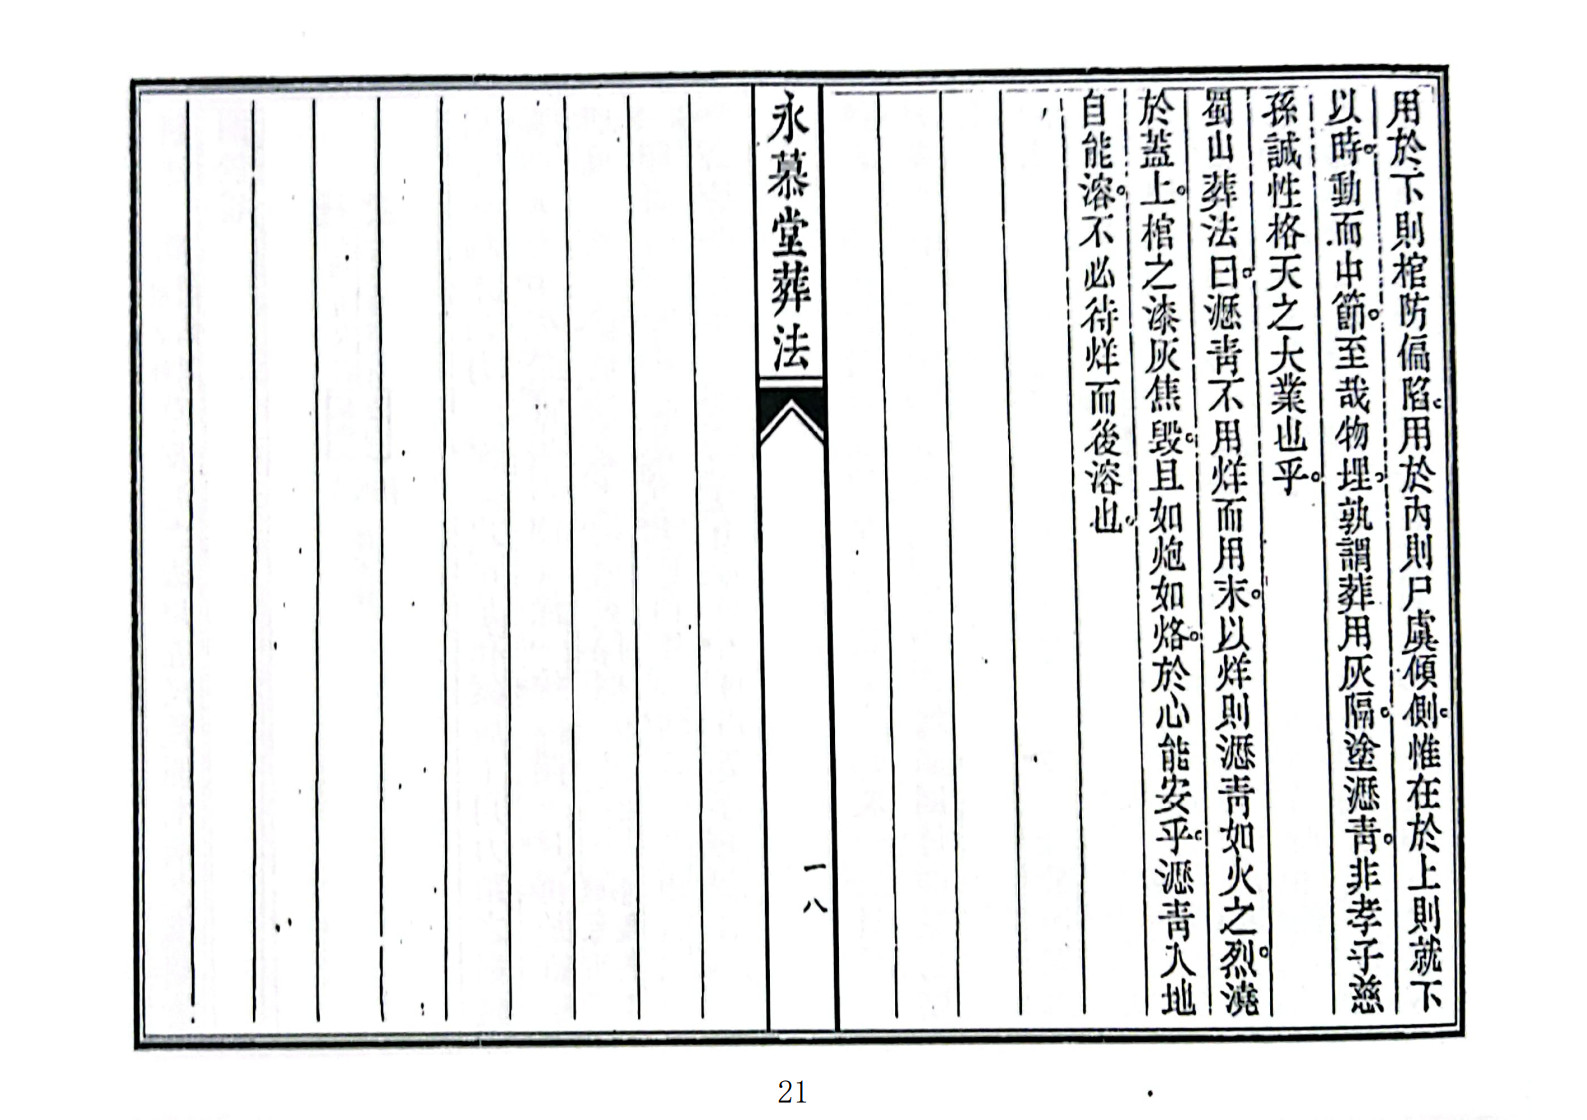 用於下則棺防偏陷。用於內則尸虞傾側。惟在於上則就下
以時。動而中節。至哉物埋。孰謂葬用灰隔。塗瀝青。非孝子慈
孫誠性格天之大業也乎。
蜀山葬法曰。瀝青不用烊而用末。以烊則瀝青如火之烈。澆
於蓋上。棺之漆灰焦毀。且如炮如烙。於心能安乎。瀝青入地
自能溶。不必待烊而後溶也。
永慕堂葬法
一八
21